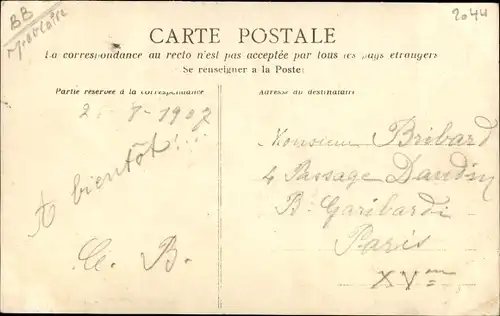 BB
2044
CARTE POSTALE
La correspondance au recto n'est pas acceptée par tous les pays etrangers
Se renseigner a la Poste
Partie réservée à la correspondance
1907
A bientôt!...
B.
Adresse du destinataire
Monsieur Bribard
4 Passage Dandin
B. Garibardi
Paris
XVme